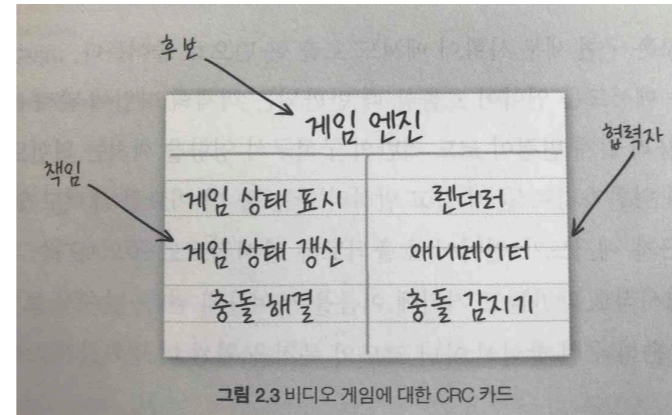 후보
게임 엔진
협력자
책임
게임 상태 표시
렌더러
게임 상태 갱신
애니메이터
충돌 해결
충돌 감지기
그림 2.3 비디오 게임에 대한 CRC 카드